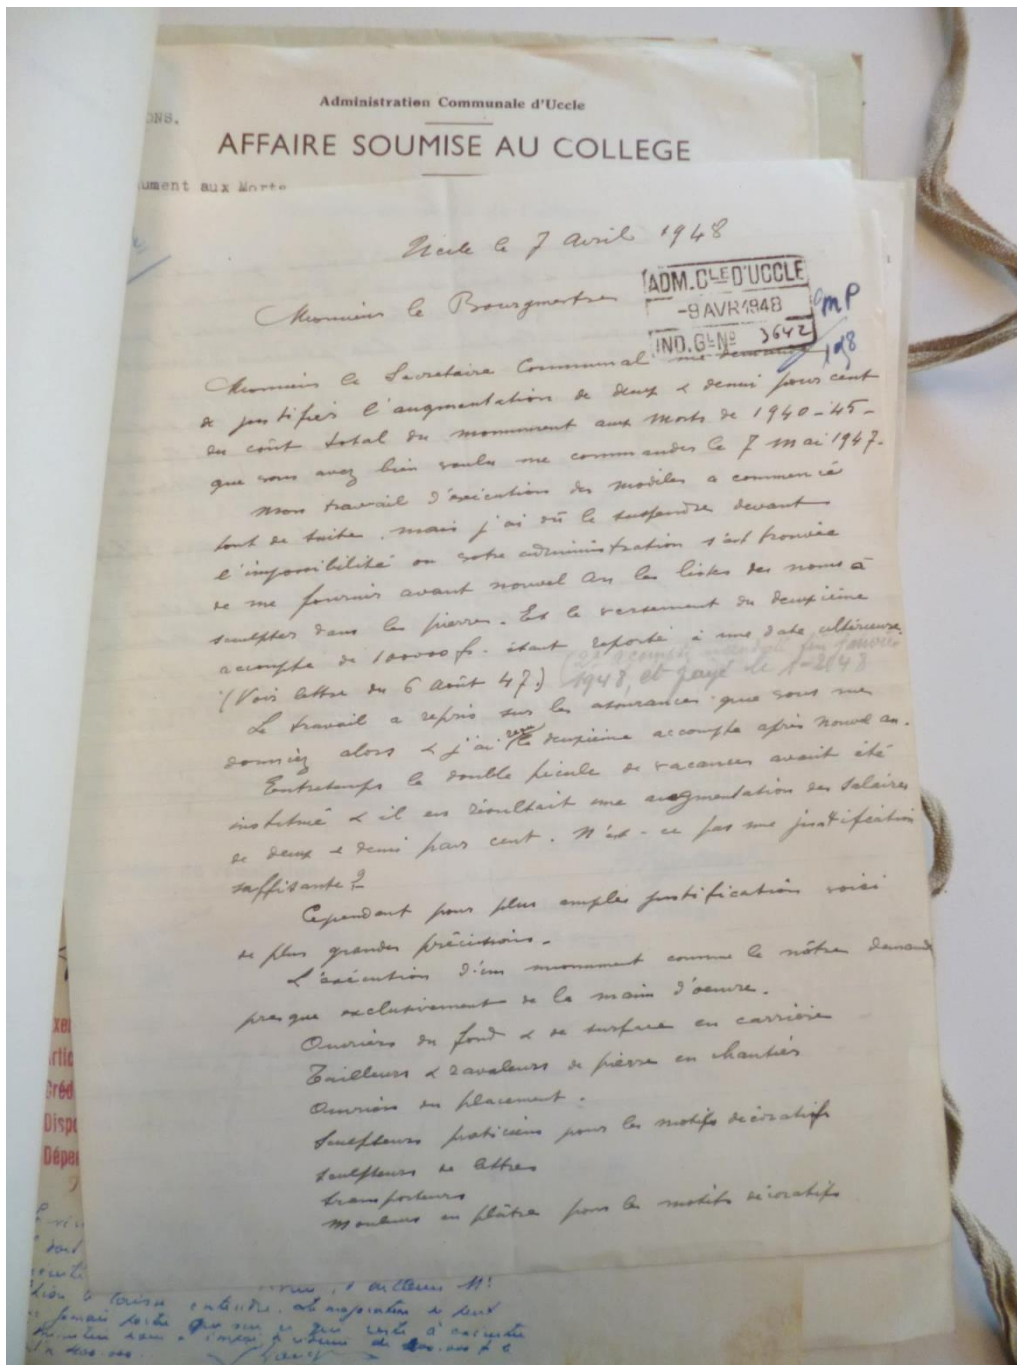 ONS.
Administration Communale d'Uccle
AFFAIRE SOUMISE AU COLLEGE
ument aux Morts
Uccle le 7 Avril 1948
ADM. CLE D'UCCLE
-9 AVR 1948
IND. GL No 3642
Monsieur le Bourgmestre
Monsieur le Secrétaire Communal me demande
de justifier l'augmentation de deux & demi pour cent
du coût total du monument aux Morts de 1940-45-
que vous avez bien voulu me commander le 7 Mai 1947.
Mon travail d'exécution des modèles a commencé
tout de suite, mais j'ai dû le suspendre devant
l'impossibilité ou votre administration s'est trouvée
de me fournir avant nouvel an les listes des noms à
sculpter dans les pierres. Et le versement du deuxième
accompte de 100000 fr. étant reporté à une date ultérieure.
(Voir lettre du 6 Août 47.)
(2e acompte janvier
1948, et payé le
Le travail a repris sur les assurances que vous me
donniez alors & j'ai reçu le deuxième accompte après nouvel an.
Entretemps le double pécule de vacances avait été
institué & il en résultait une augmentation des salaires
de deux & demi pour cent. N'est-ce pas une justification
suffisante?
Cependant pour plus amples justification voici
de plus grandes précisions.
L'exécution d'un monument comme le nôtre demande
presque exclusivement de la main d'oeuvre.
Ouvriers du fond & de surface en carrière
Tailleurs & ravaleurs de pierre en chantier
Ouvriers du placement.
Sculpteurs praticiens pour les motifs décoratifs
sculpteurs de lettres
transporteurs
mouleurs en plâtre pour les motifs décoratifs
Dispo
laisse entendre,